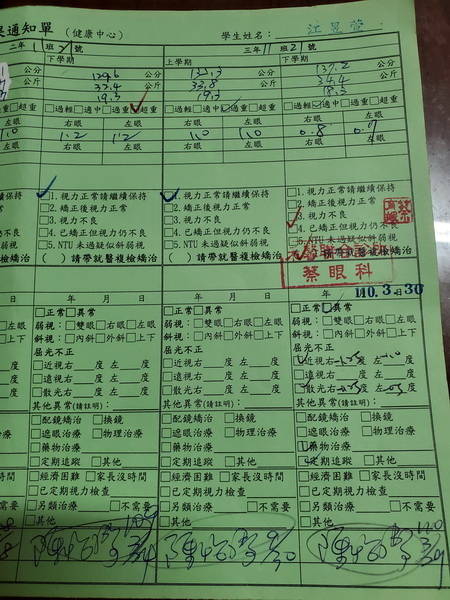 通知單 (健康中心) 學生姓名：
二年1班21號 三年11班21號
下學期 上學期 下學期
公分 129.6公分 公分 137.2公分
公斤 公斤 33.8公斤 34.4公斤
19.3 18.3
過重 超重 過輕 適中 過重 超重 過輕 適中 過重 超重 過輕 適中 過重 超重
1.0 1.2 1.2 1.0 1.0 0.8
左眼 右眼 左眼 右眼 左眼 右眼 左眼
1.視力正常請繼續保持 1.視力正常請繼續保持 1.視力正常請繼續保持
2.矯正後視力正常 2.矯正後視力正常 2.矯正後視力正常
3.視力不良 3.視力不良 3.視力不良
4.已矯正但視力仍不良 4.已矯正但視力仍不良 4.已矯正但視力仍不良
5.NTU未過疑似斜弱視 5.NTU未過疑似斜弱視 5.NTU未過疑似斜弱視
( )請帶就醫複檢矯治 ( )請帶就醫複檢矯治 請帶就醫複檢矯治
蔡眼科
日 年 月 日 年 月 日 110.3月30
正常 異常 正常 異常 正常 異常
左眼 弱視：雙眼 右眼 左眼 弱視：雙眼 右眼 左眼 弱視：雙眼 右眼 左眼
上下 斜視：內斜 外斜 上下 斜視：內斜 外斜 上下 斜視：內斜 外斜 上下
屈光不正 屈光不正 屈光不正
度 近視右 度 左 度 近視右 度 左 度 近視右 度 左 度
度 遠視右 度 左 度 遠視右 度 左 度 遠視右 度 左 度
度 散光右 度 左 度 散光右 度 左 度 散光右 度 左 度
其他異常(請註明)： 其他異常(請註明)： 其他異常(請註明)：
配鏡矯治 換鏡 配鏡矯治 換鏡 配鏡矯治 換鏡
治療 遮眼治療 物理治療 遮眼治療 物理治療 遮眼治療 物理治療
藥物治療 藥物治療 藥物治療
定期追蹤 其他 定期追蹤 其他 定期追蹤 其他
沒時間 經濟困難 家長沒時間 經濟困難 家長沒時間 經濟困難 家長沒時間
已定期視力檢查 已定期視力檢查 已定期視力檢查
不需要 另類治療 不需要 另類治療 不需要 另類治療 不需要
其他 其他 其他